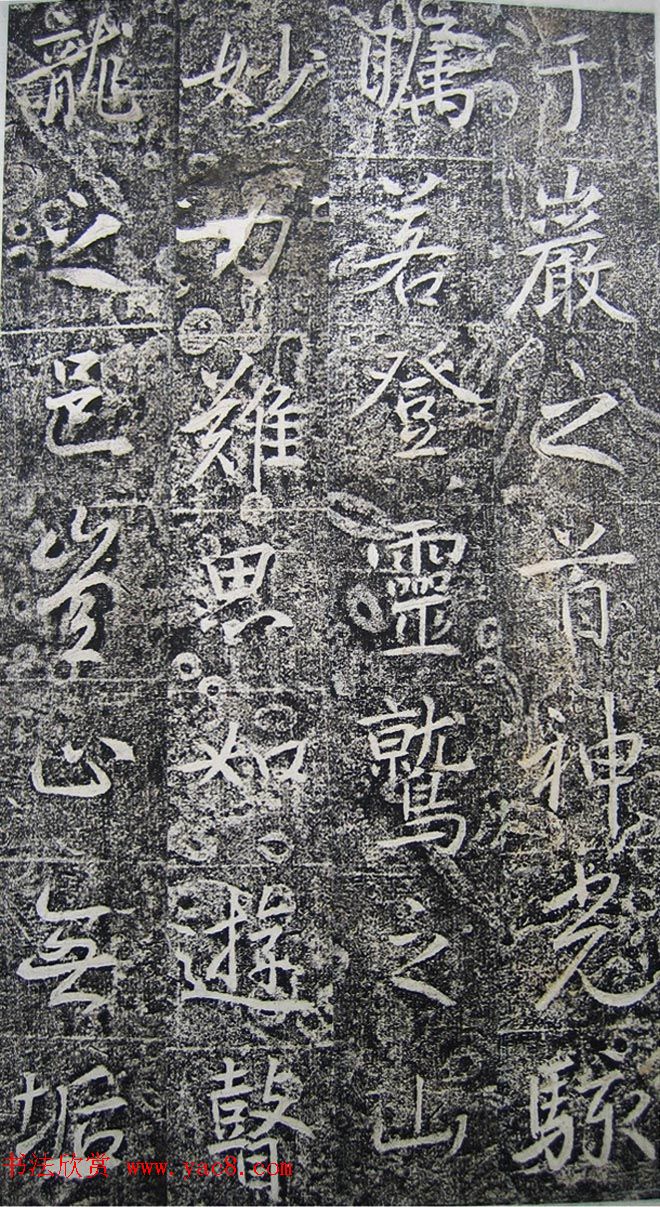 于巖之首神光駭
瞩若登靈鷲之山
妙力難思如遊瞽
龍之邑豈止無垢
书法欣赏 www.yac8.com